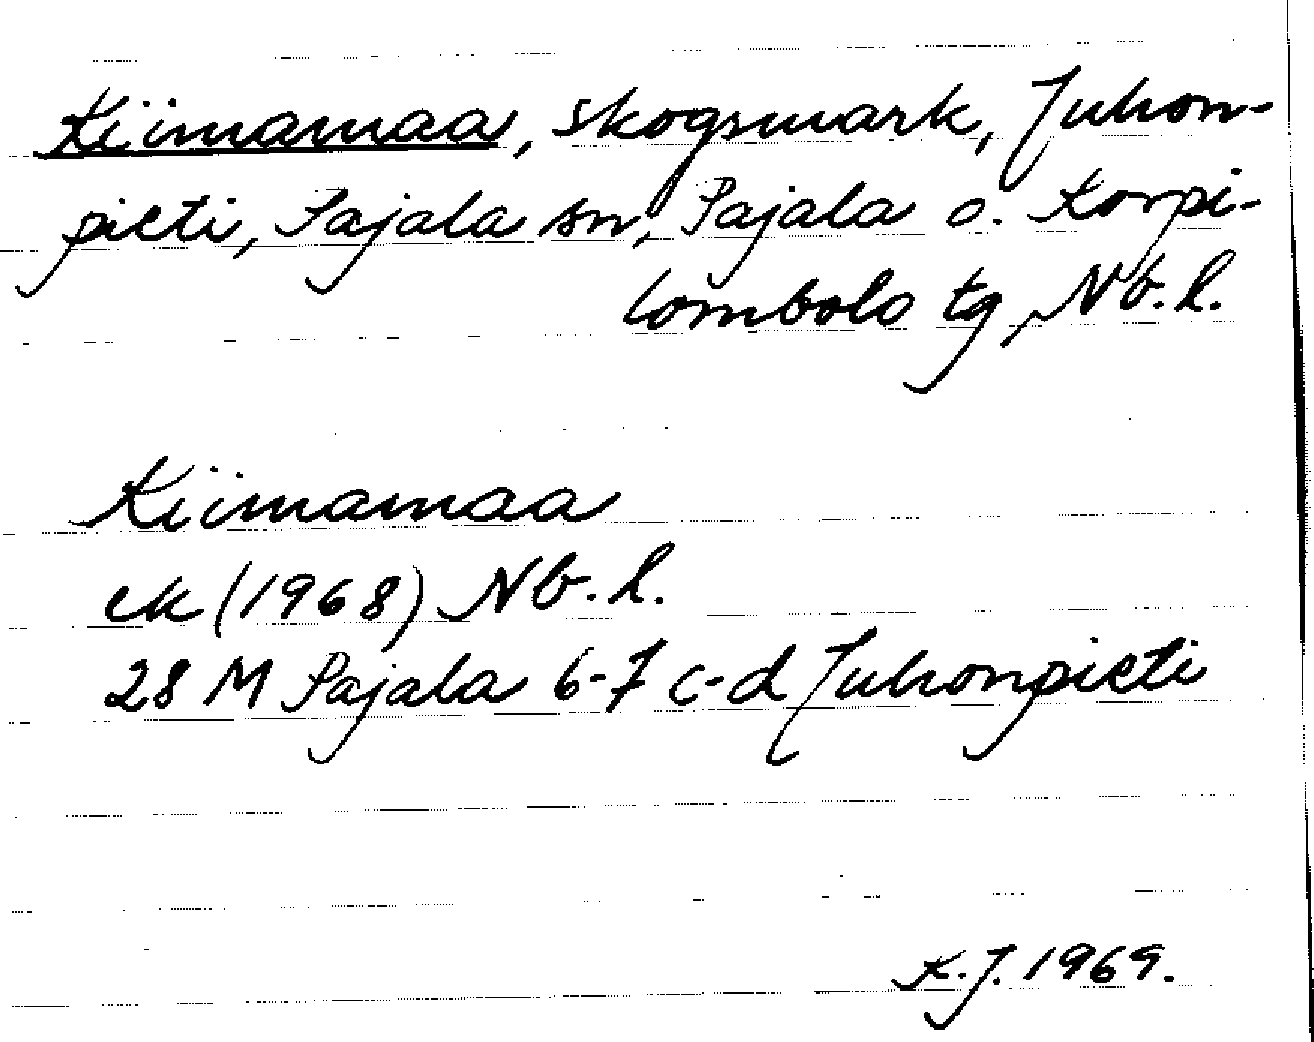 Kiimamaa, skogsmark, Juhon-
pieti, Pajala sn, Pajala o. Korpi-
lombolo tg, Nb. l.
Kiimamaa
ek (1968) Nb. l.
28 M Pajala 6-7 c-d Juhonpieti
K.J. 1969.